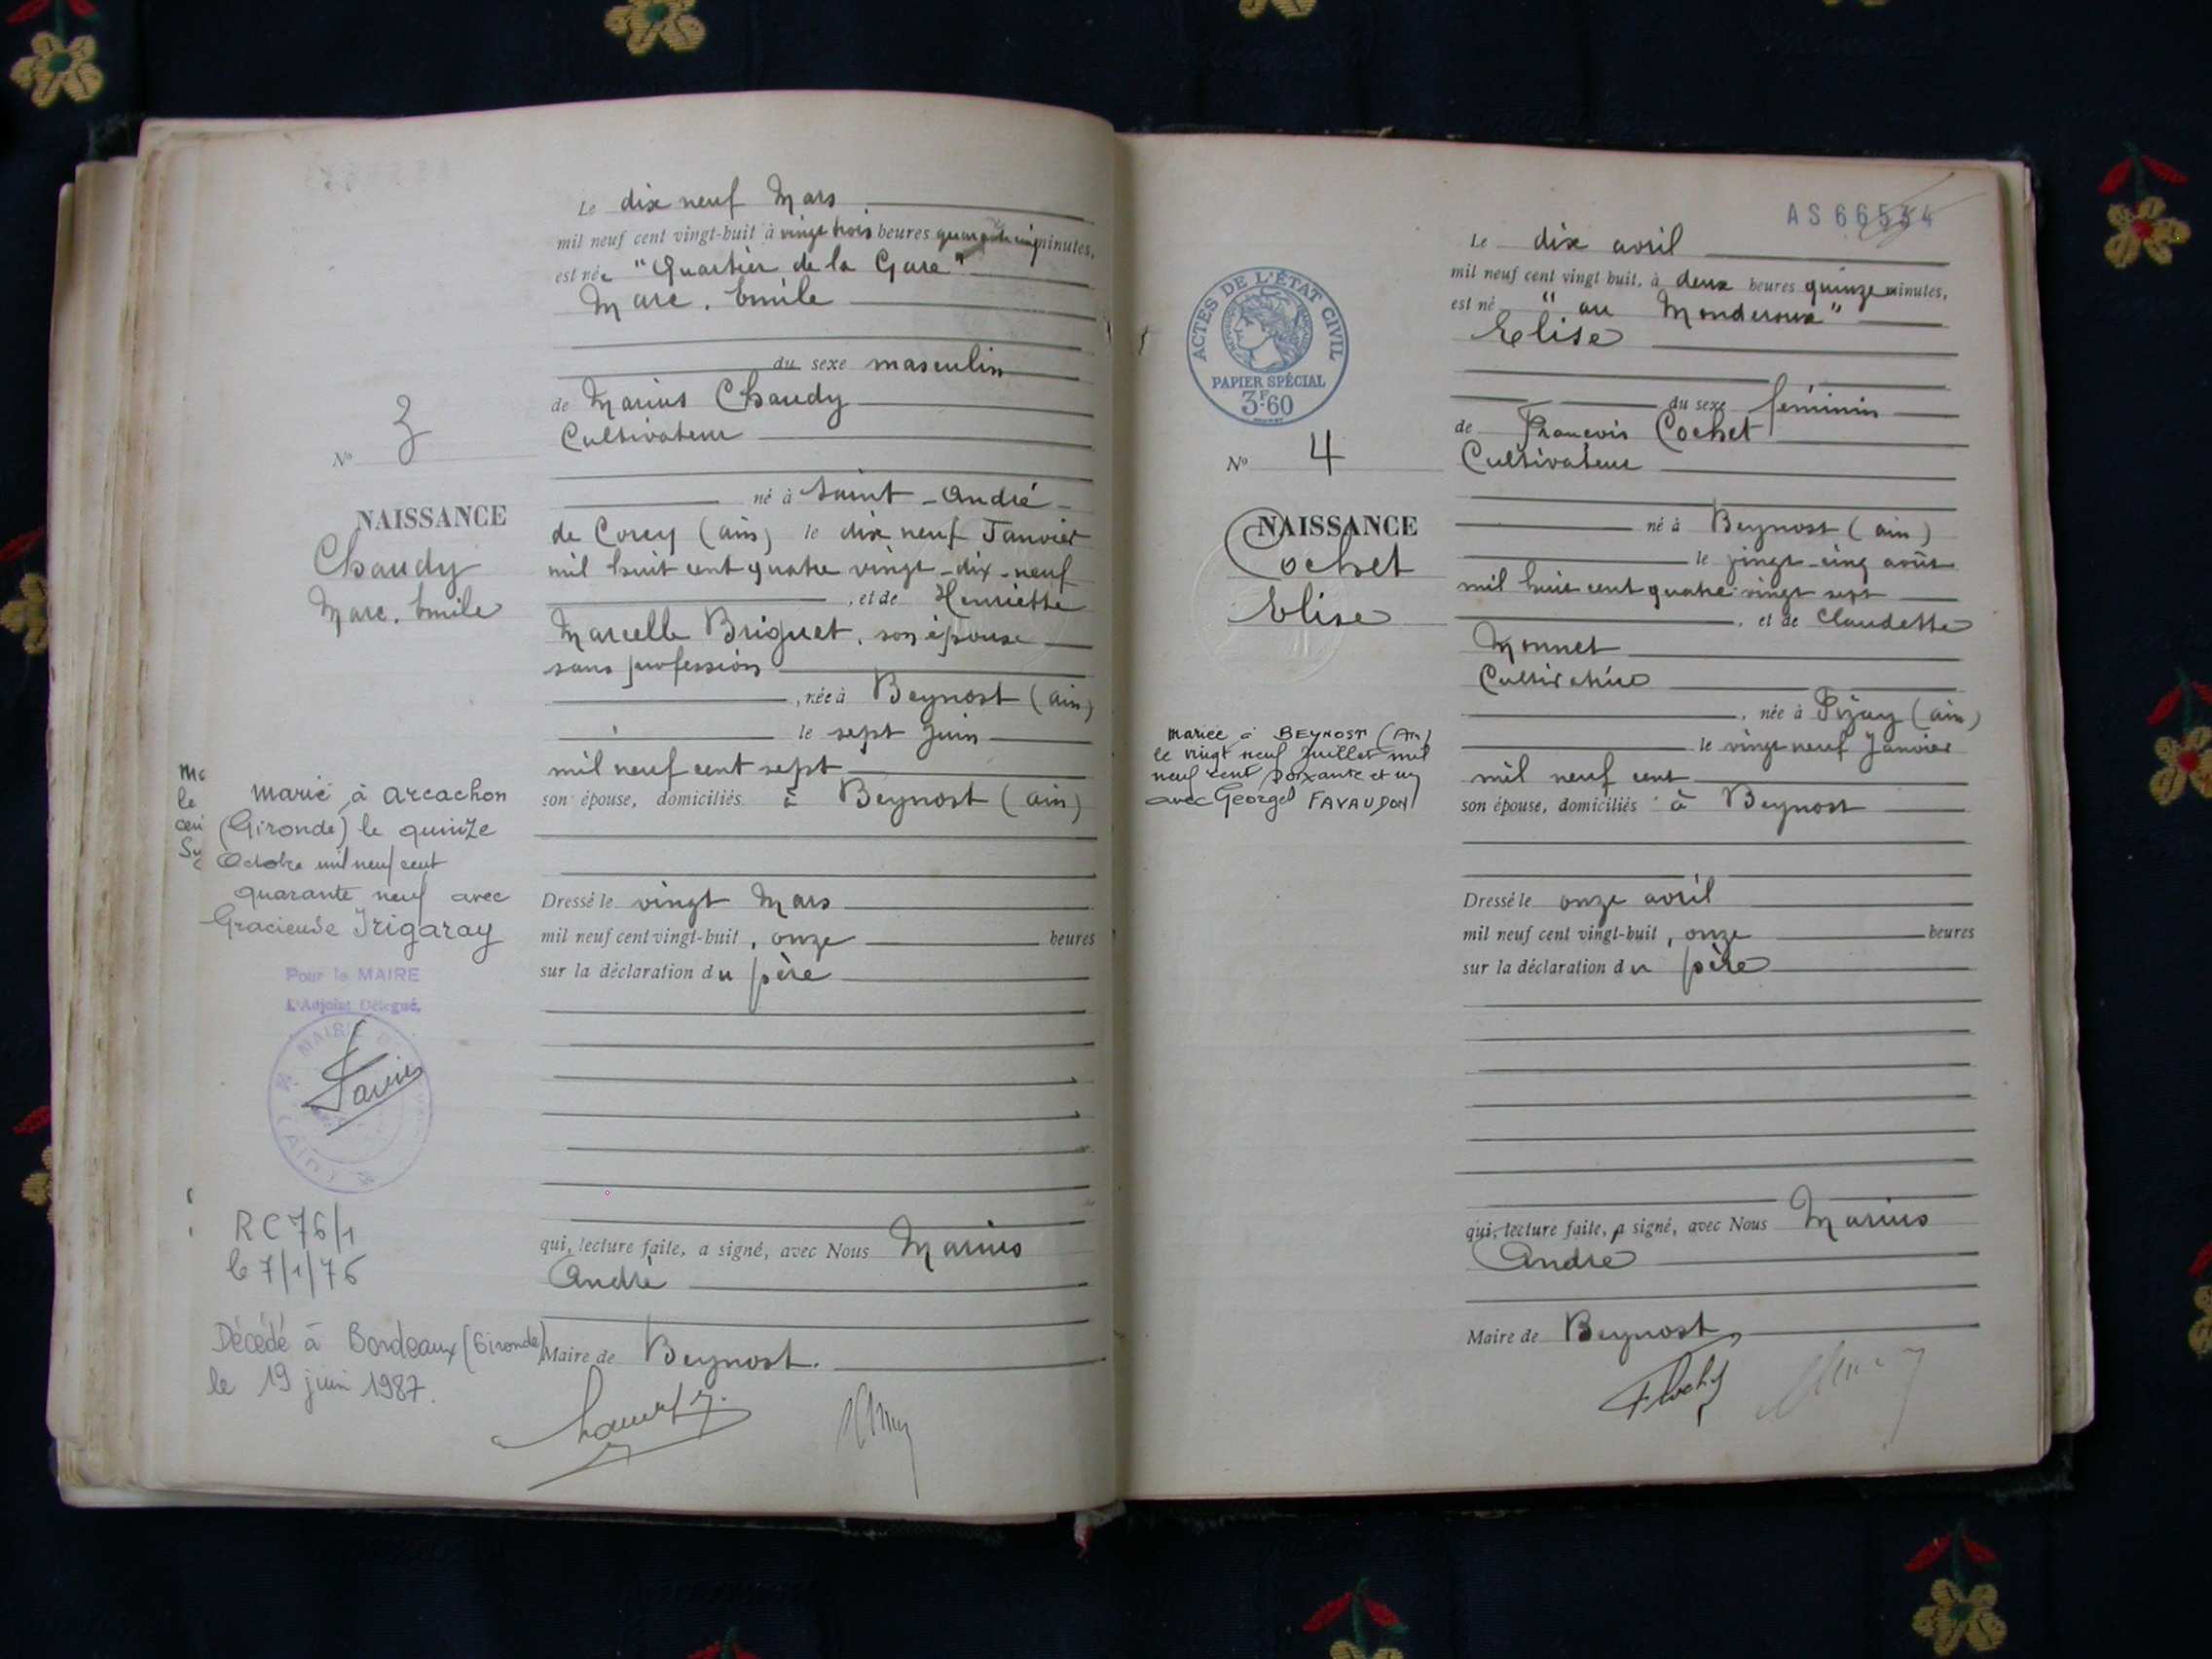 Le dix neuf Mars
mil neuf cent vingt-huit à vingt trois heures quarante cinq minutes,
est né "Quartier de la Gare"
Marc. Emile
du sexe masculin
de Marius Chaudy
Cultivateur
né à Saint-André-
de Corcy (ain) le dix neuf Janvier
mil huit cent quatre vingt-dix-neuf
, et de Henriette
Marcelle Briguet, son épouse
sans profession
, née à Beynost (ain)
le sept Juin
mil neuf cent sept
son épouse, domiciliés à Beynost (ain)
Dressé le vingt Mars
mil neuf cent vingt-huit, onze heures
sur la déclaration du père
qui, lecture faite, a signé, avec Nous Marius
André
Maire de Beynost.
No 3
NAISSANCE
Chaudy
Marc. Emile
Marié à Arcachon
(Gironde) le quinze
Octobre mil neuf cent
quarante neuf avec
Gracieuse Irigaray
Pour le MAIRE
L'Adjoint Délégué,
MAIRIE
(AIN)
RC 76/1
le 7/1/76
Décédé à Bordeaux (Gironde)
le 19 juin 1987.
AS 66534
Le dix avril
mil neuf cent vingt-huit, à deux heures quinze minutes,
est né "au Monderoux"
Elise
du sexe féminin
de François Cochet
Cultivateur
né à Beynost (ain)
le vingt-cinq août
mil huit cent quatre-vingt sept
, et de Claudette
Monnet
Cultivatrice
, née à Pizay (ain)
le vingt neuf Janvier
mil neuf cent
son épouse, domiciliés à Beynost
Dressé le onze avril
mil neuf cent vingt-huit, onze heures
sur la déclaration du père
qui, lecture faite, a signé, avec Nous Marius
André
Maire de Beynost
ACTES DE L'ÉTAT CIVIL
PAPIER SPÉCIAL
3F.60
No 4
NAISSANCE
Cochet
Elise
Mariée à BEYNOST (Ain)
le vingt neuf Juillet mil
neuf cent soixante et un
avec Georges FAVAUDON